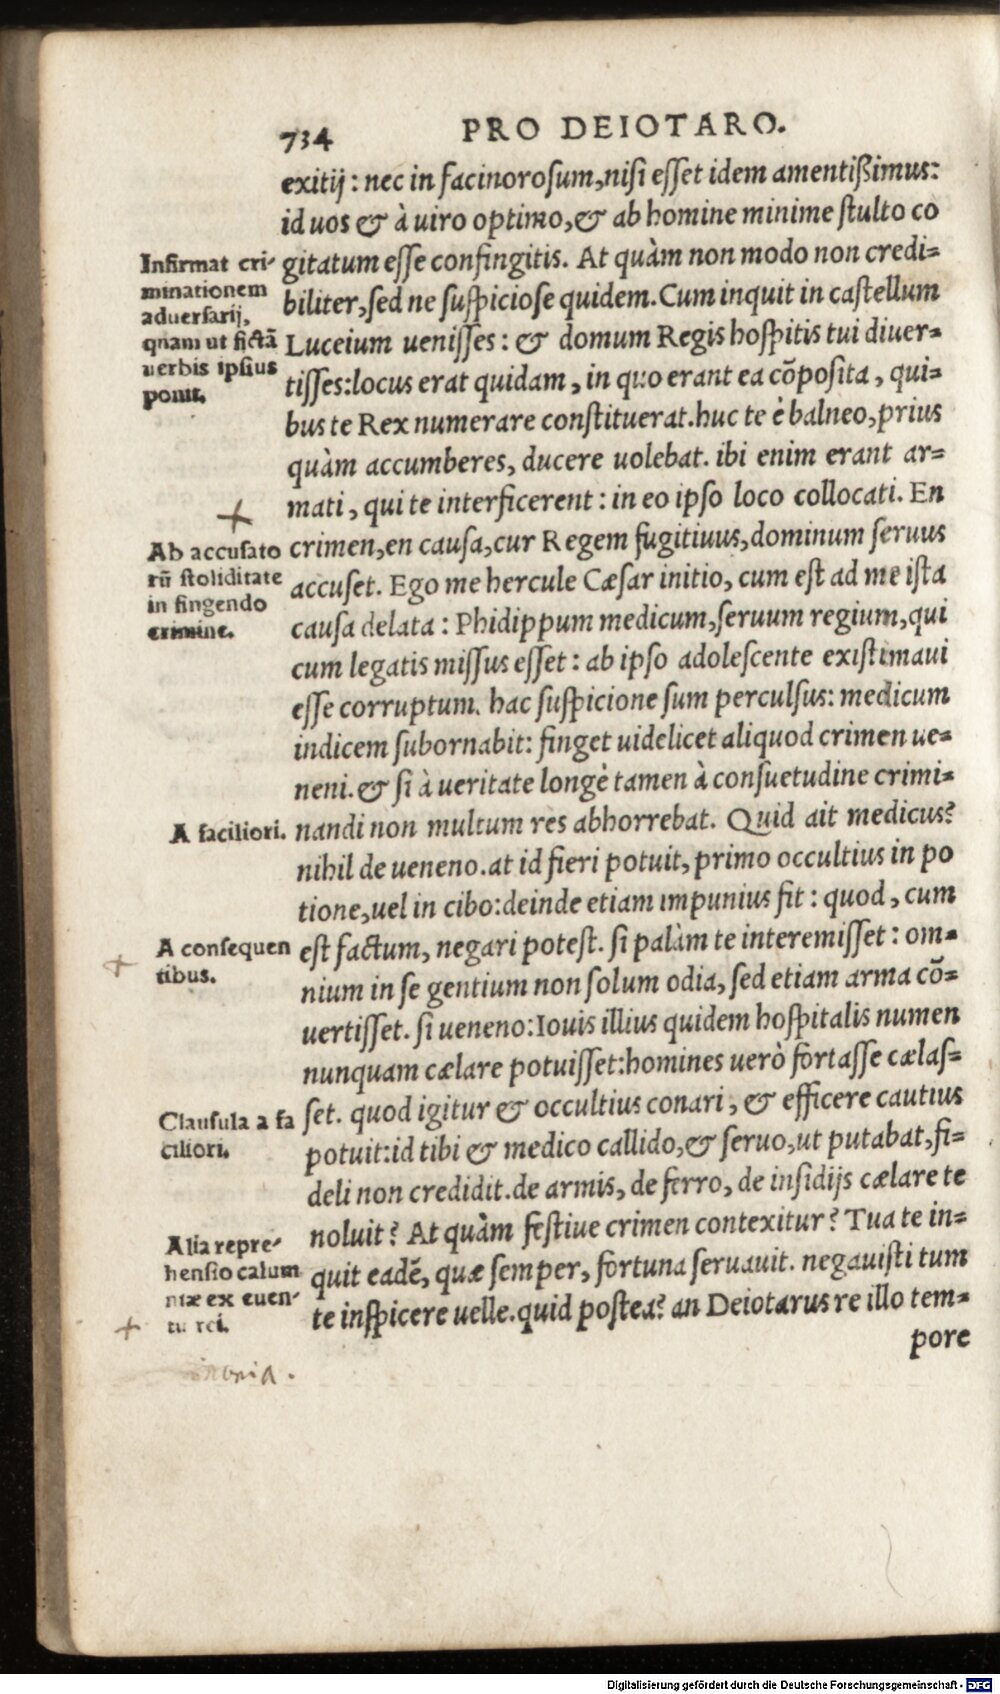 734 PRO DEIOTARO.
exitij: nec in facinorosum, nisi esset idem amentißimus:
id uos & à uiro optimo, & ab homine minime stulto co
gitatum esse confingitis. At quàm non modo non credi=
biliter, sed ne suspiciose quidem. Cum inquit in castellum
Luceium uenisses: & domum Regis hospitis tui diuer=
tisses: locus erat quidam, in quo erant ea cõposita, qui=
bus te Rex numerare constituerat. huc te è balneo, prius
quàm accumberes, ducere uolebat. ibi enim erant ar=
mati, qui te interficerent: in eo ipso loco collocati. En
crimen, en causa, cur Regem fugitiuus, dominum seruus
accuset. Ego me hercule Cæsar initio, cum est ad me ista
causa delata: Phidippum medicum, seruum regium, qui
cum legatis missus esset: ab ipso adolescente existimaui
esse corruptum. hac suspicione sum perculsus: medicum
indicem subornabit: finget uidelicet aliquod crimen ue=
neni. & si à ueritate longè tamen à consuetudine crimi=
nandi non multum res abhorrebat. Quid ait medicus?
nihil de ueneno. at id fieri potuit, primo occultius in po
tione, uel in cibo: deinde etiam impunius fit: quod, cum
est factum, negari potest. si palàm te interemisset: om=
nium in se gentium non solum odia, sed etiam arma cõ=
uertisset. si ueneno: Iouis illius quidem hospitalis numen
nunquam cælare potuisset: homines uerò fortasse cælas=
set. quod igitur & occultius conari, & efficere cautius
potuit: id tibi & medico callido, & seruo, ut putabat, fi=
deli non credidit. de armis, de ferro, de insidijs cælare te
noluit? At quàm festiue crimen contexitur? Tua te in=
quit eadē, quæ semper, fortuna seruauit. negauisti tum
te inspicere uelle. quid postea? an Deiotarus re illo tem=
pore
Infirmat cri-
minationem
aduersarij,
quam ut fictã
uerbis ipsius
ponit.
Ab accusato
rũ stoliditate
in fingendo
crimine.
A faciliori.
A consequen
tibus.
Clausula a fa
ciliori.
Alia repre-
hensio calum
niæ ex euen-
tu rei.
Digitalisierung gefördert durch die Deutsche Forschungsgemeinschaft - DFG